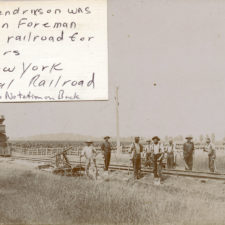 endrikson was
n Foreman
railroad for
rs
ew York
al Railroad
Notation on Back